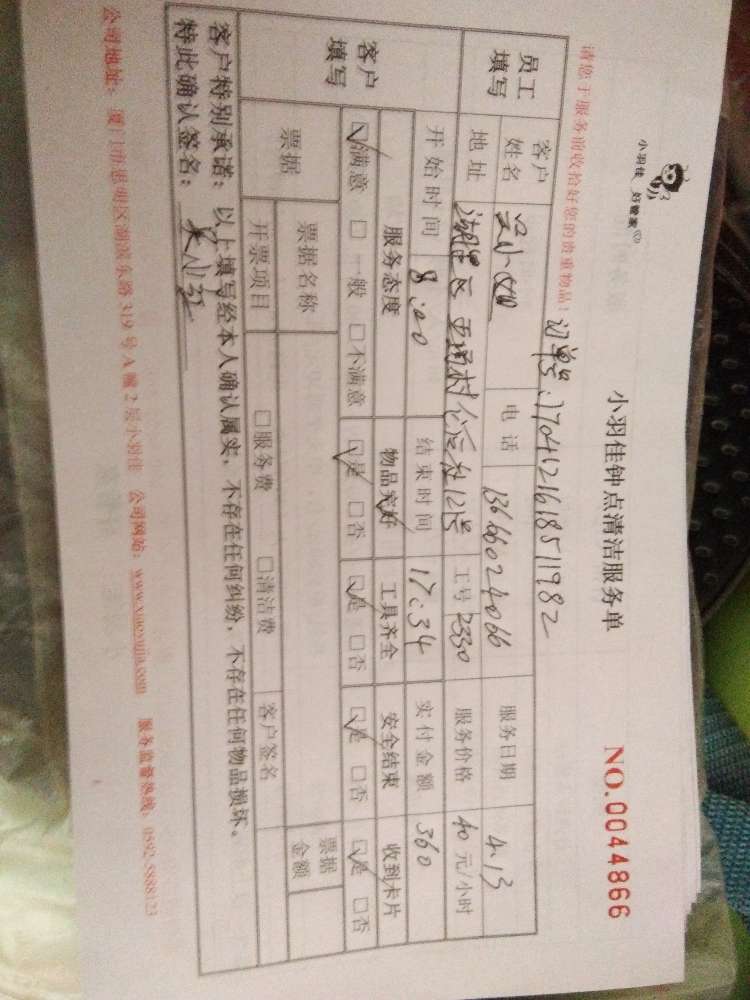 小羽佳 好管家
小羽佳钟点清洁服务单
NO.0044866
请您于服务前收拾好您的贵重物品！
订单号:1704121618511982
员工填写
客户姓名 电话 13666024066 服务日期 4.13
地址 湖里区 村 12号 工号 2330 服务价格 40 元/小时
客户填写
开始时间 8:00 结束时间 17:34 实付金额 360
服务态度 物品完好 工具齐全 安全结束 收到卡片
☑满意 □一般 □不满意 ☑是 □否 ☑是 □否 ☑是 □否 ☑是 □否
票据 票据名称 票据金额
开票项目 □服务费 □清洁费 客户签名
客户特别承诺：以上填写经本人确认属实，不存在任何纠纷，不存在任何物品损坏。
特此确认签名：
公司地址：厦门市思明区湖滨东路319号A幢2层小羽佳 公司网站：www.xiaoyujia.com 服务监督热线：0592-5888123